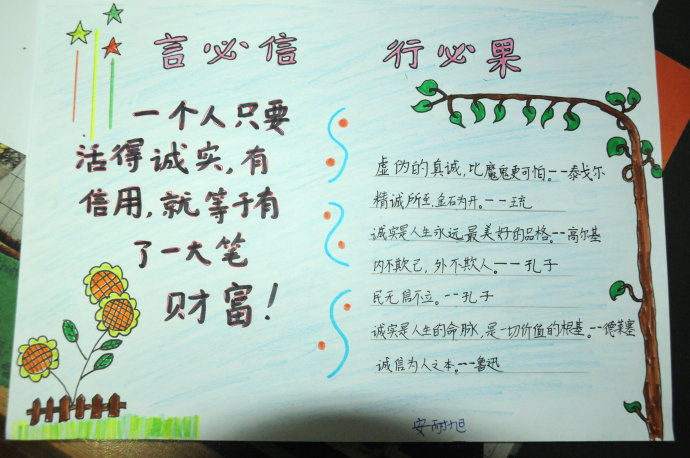 言必信 行必果
一个人只要
活得诚实,有
信用,就等于有
了一大笔
财富!
虚伪的真诚,比魔鬼更可怕。--泰戈尔
精诚所至,金石为开。--王充
诚实是人生永远最美好的品格。--高尔基
内不欺己,外不欺人。--孔子
民无信不立。--孔子
诚实是人生的命脉,是一切价值的根基。--德莱塞
诚信为人之本。--鲁迅